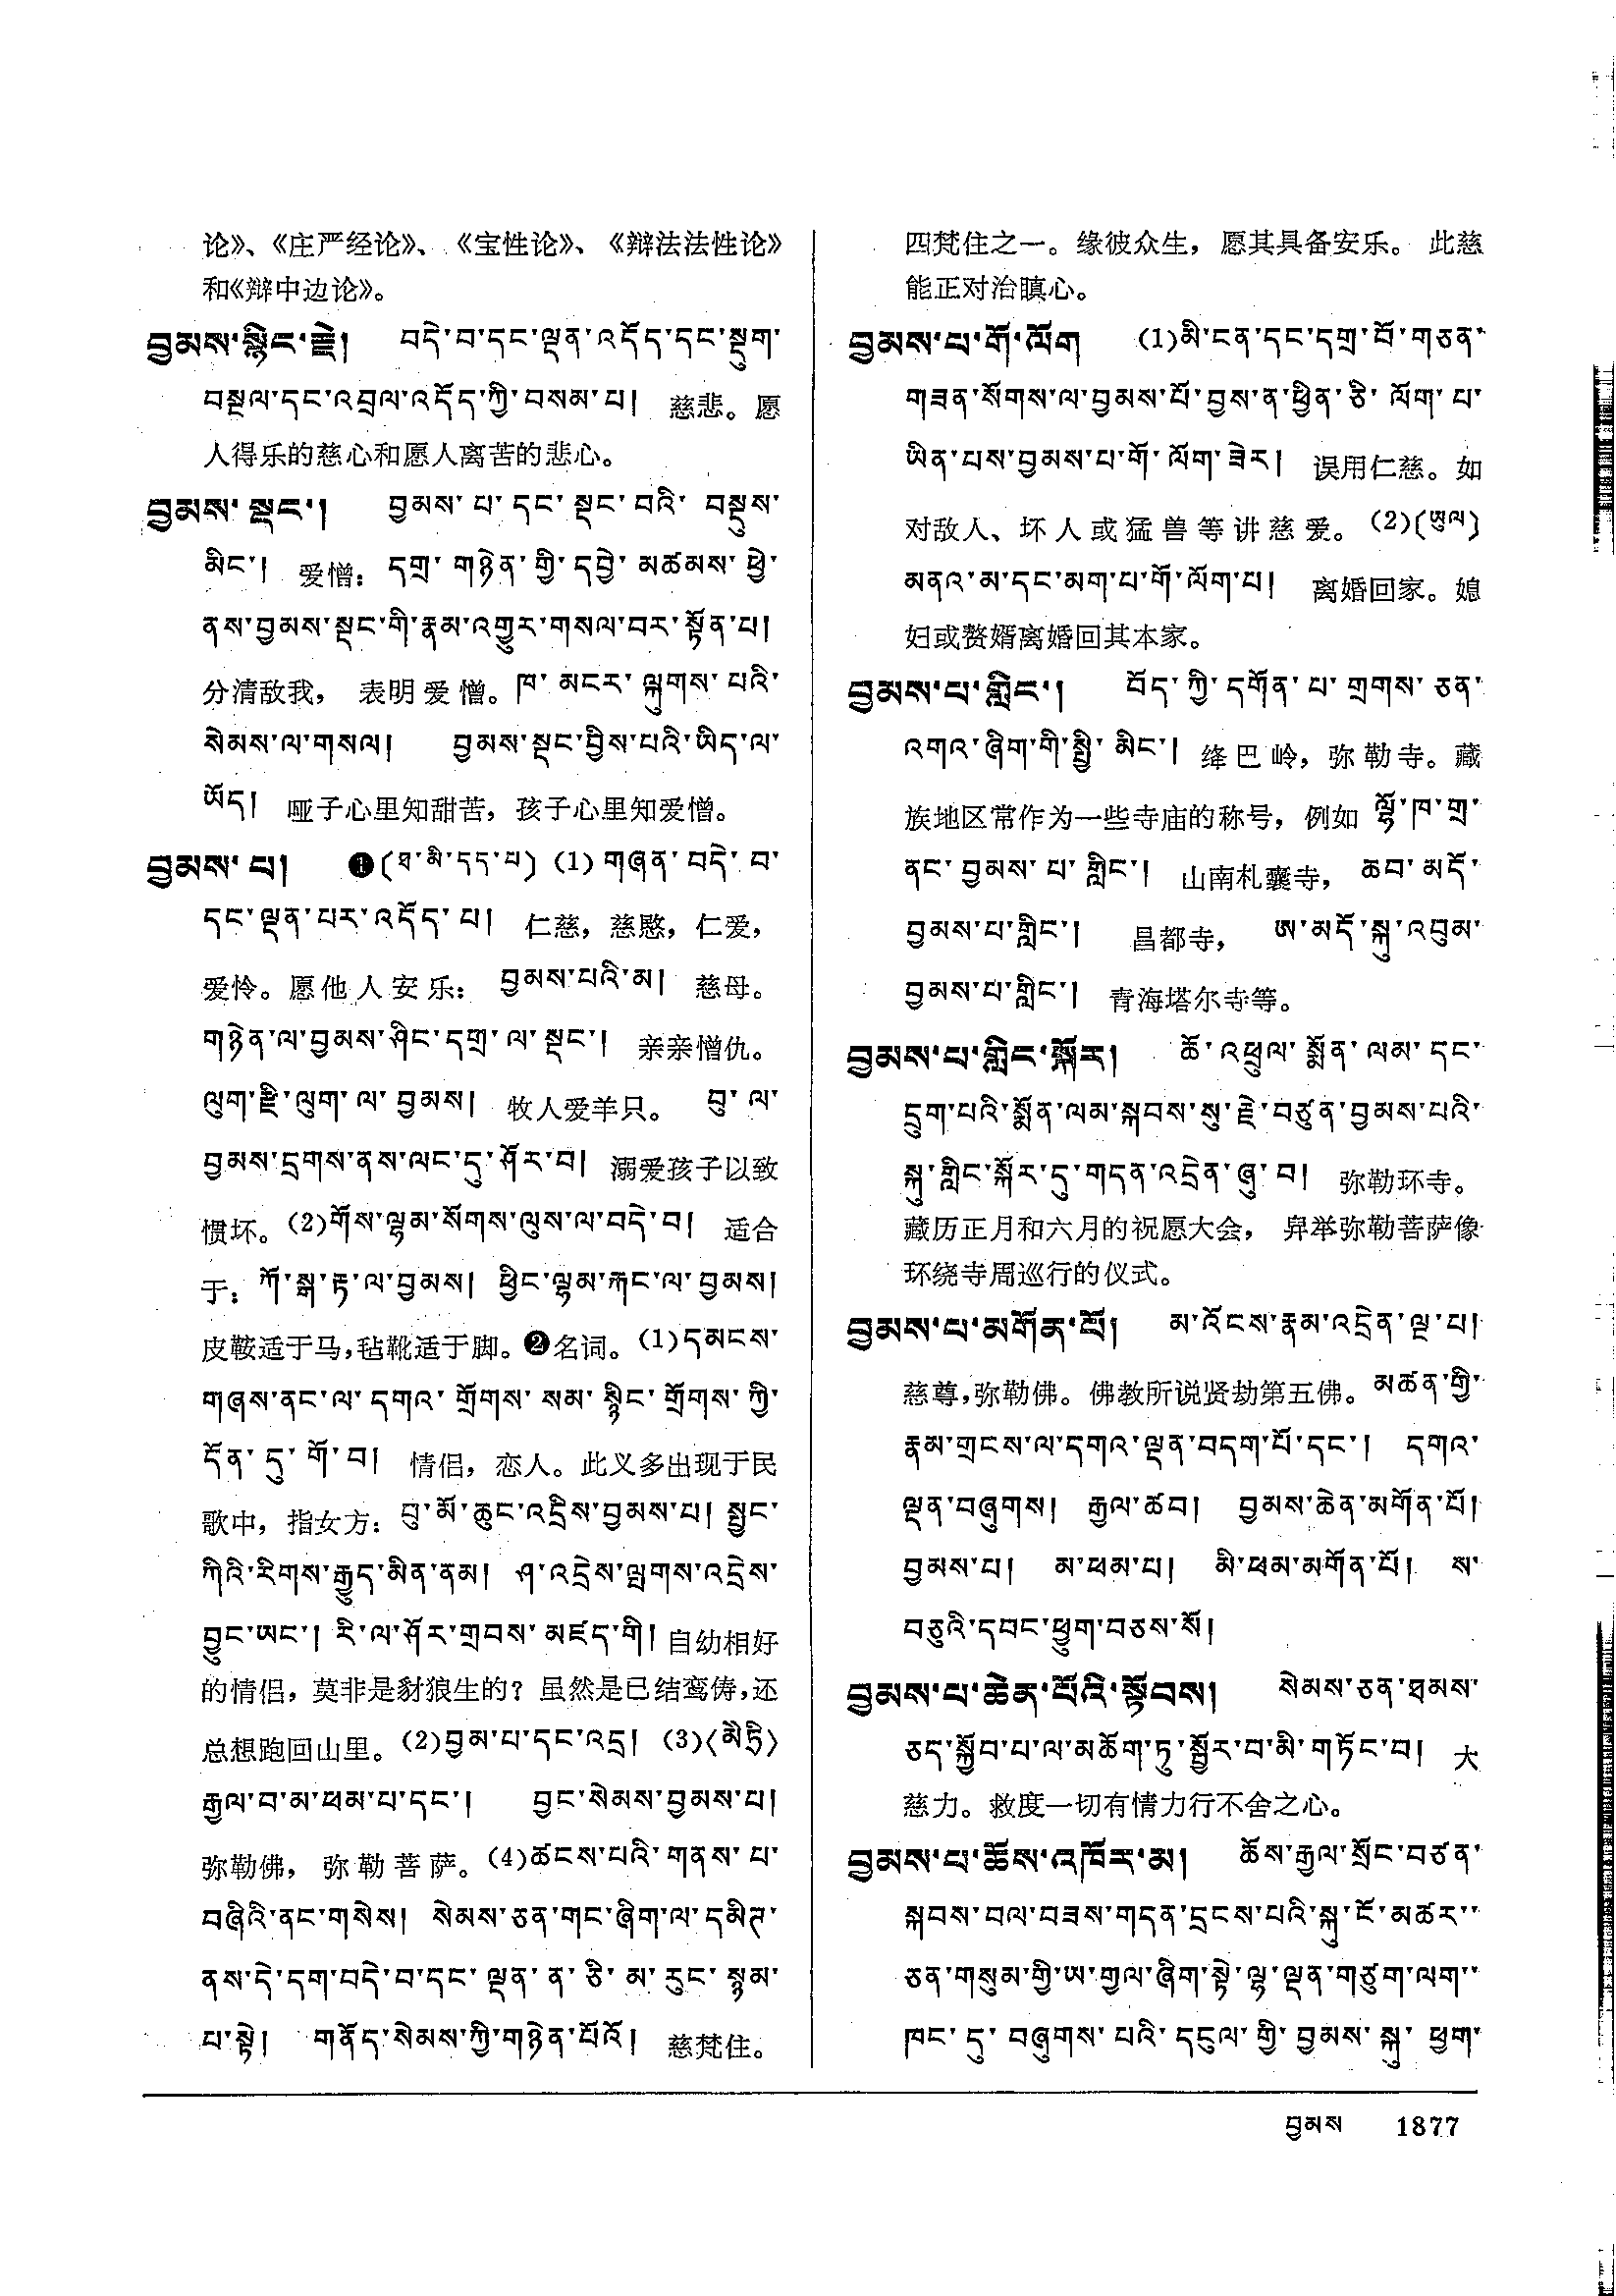 论》、《庄严经论》、《宝性论》、《辩法法性论》
和《辩中边论》。
བྱམས་སྙིང་རྗེ། བདེ་བ་དང་ལྡན་འདོད་དང་སྡུག་
བསྔལ་དང་འབྲལ་འདོད་ཀྱི་བསམ་པ། 慈悲。愿
人得乐的慈心和愿人离苦的悲心。
བྱམས་སྡང་། བྱམས་པ་དང་སྡང་བའི་བསྡུས་
མིང་། 爱憎：དགྲ་གཉེན་གྱི་དབྱེ་མཚམས་ཕྱེ་
ནས་བྱམས་སྡང་གི་རྣམ་འགྱུར་གསལ་བར་སྟོན་པ།
分清敌我，表明爱憎。ཁ་མངར་ལྐུགས་པའི་
སེམས་ལ་གསལ། བྱམས་སྡང་བྱིས་པའི་ཡིད་ལ་
ཡོད། 哑子心里知甜苦，孩子心里知爱憎。
བྱམས་པ། ❶(ཐ་མི་དད་པ) (1) གཞན་བདེ་བ་
དང་ལྡན་པར་འདོད་པ། 仁慈，慈愍，仁爱，
爱怜。愿他人安乐：བྱམས་པའི་མ། 慈母。
གཉེན་ལ་བྱམས་ཤིང་དགྲ་ལ་སྡང་། 亲亲憎仇。
ལུག་རྫི་ལུག་ལ་བྱམས། 牧人爱羊只。 བུ་ལ་
བྱམས་དྲགས་ནས་ལང་དུ་ཤོར་བ། 溺爱孩子以致
惯坏。(2)གོས་ལྷམ་སོགས་ལུས་ལ་བདེ་བ། 适合
于：ཀོ་སྒ་རྟ་ལ་བྱམས། ཕྱིང་ལྷམ་རྐང་ལ་བྱམས།
皮鞍适于马，毡靴适于脚。❷名词。(1)དམངས་
གཞས་ནང་ལ་དགའ་གྲོགས་སམ་སྙིང་གྲོགས་ཀྱི་
དོན་དུ་གོ་བ། 情侣，恋人。此义多出现于民
歌中，指女方：བུ་མོ་ཆུང་འདྲིས་བྱམས་པ། སྤྱང་
ཀིའི་རིགས་རྒྱུད་མིན་ནམ། ཤ་འདྲེས་ལྤགས་འདྲེས་
བྱུང་ཡང་། རི་ལ་ཤོར་གྲབས་མཛད་གི། 自幼相好
的情侣，莫非是豺狼生的？虽然是已结鸾俦，还
总想跑回山里。(2)བྱམ་པ་དང་འདྲ། (3)〈མེ་ཏྲི〉
རྒྱལ་བ་མ་ཕམ་པ་དང་། བྱང་སེམས་བྱམས་པ།
弥勒佛，弥勒菩萨。(4)ཚངས་པའི་གནས་པ་
བཞིའི་ནང་གསེས། སེམས་ཅན་གང་ཞིག་ལ་དམིཊ་
ནས་དེ་དག་བདེ་བ་དང་ལྡན་ན་ཅི་མ་རུང་སྙམ་
པ་སྟེ། གནོད་སེམས་ཀྱི་གཉེན་པོའོ། 慈梵住。
四梵住之一。缘彼众生，愿其具备安乐。此慈
能正对治瞋心。
བྱམས་པ་གོ་ལོག (1)མི་ངན་དང་དགྲ་བོ་གཅན་
གཟན་སོགས་ལ་བྱམས་པོ་བྱས་ན་ཕྱིན་ཅི་ལོག་པ་
ཡིན་པས་བྱམས་པ་གོ་ལོག་ཟེར། 误用仁慈。如
对敌人、坏人或猛兽等讲慈爱。(2)(ཡུལ)
མནའ་མ་དང་མག་པ་གོ་ལོག་པ། 离婚回家。媳
妇或赘婿离婚回其本家。
བྱམས་པ་གླིང་། བོད་ཀྱི་དགོན་པ་གྲགས་ཅན་
འགའ་ཞིག་གི་སྤྱི་མིང་། 绛巴岭，弥勒寺。藏
族地区常作为一些寺庙的称号，例如 ལྷོ་ཁ་གྲ་
ནང་བྱམས་པ་གླིང་། 山南札囊寺， ཆབ་མདོ་
བྱམས་པ་གླིང་། 昌都寺， ཨ་མདོ་སྐུ་འབུམ་
བྱམས་པ་གླིང་། 青海塔尔寺等。
བྱམས་པ་གླིང་སྐོར། ཆོ་འཕྲུལ་སྨོན་ལམ་དང་
དྲུག་པའི་སྨོན་ལམ་སྐབས་སུ་རྗེ་བཙུན་བྱམས་པའི་
སྐུ་གླིང་སྐོར་དུ་གདན་འདྲེན་ཞུ་བ། 弥勒环寺。
藏历正月和六月的祝愿大会，舁举弥勒菩萨像
环绕寺周巡行的仪式。
བྱམས་པ་མགོན་པོ། མ་འོངས་རྣམ་འདྲེན་ལྔ་པ།
慈尊，弥勒佛。佛教所说贤劫第五佛。མཚན་གྱི་
རྣམ་གྲངས་ལ་དགའ་ལྡན་བདག་པོ་དང་། དགའ་
ལྡན་བཞུགས། རྒྱལ་ཚབ། བྱམས་ཆེན་མགོན་པོ།
བྱམས་པ། མ་ཕམ་པ། མི་ཕམ་མགོན་པོ། ས་
བཅུའི་དབང་ཕྱུག་བཅས་སོ།
བྱམས་པ་ཆེན་པོའི་སྟོབས། སེམས་ཅན་ཐམས་
ཅད་སྐྱོབ་པ་ལ་མཆོག་ཏུ་སྦྱོར་བ་མི་གཏོང་བ། 大
慈力。救度一切有情力行不舍之心。
བྱམས་པ་ཆོས་འཁོར་མ། ཆོས་རྒྱལ་སྲོང་བཙན་
སྐབས་བལ་བཟས་གདན་དྲངས་པའི་སྐུ་ངོ་མཚར་་
ཅན་གསུམ་གྱི་ཨ་གྱལ་ཞིག་སྟེ་ལྷ་ལྡན་གཙུག་ལག་་
ཁང་དུ་བཞུགས་པའི་དངུལ་གྱི་བྱམས་སྐུ་ཕྱག་
བྱམས 1877